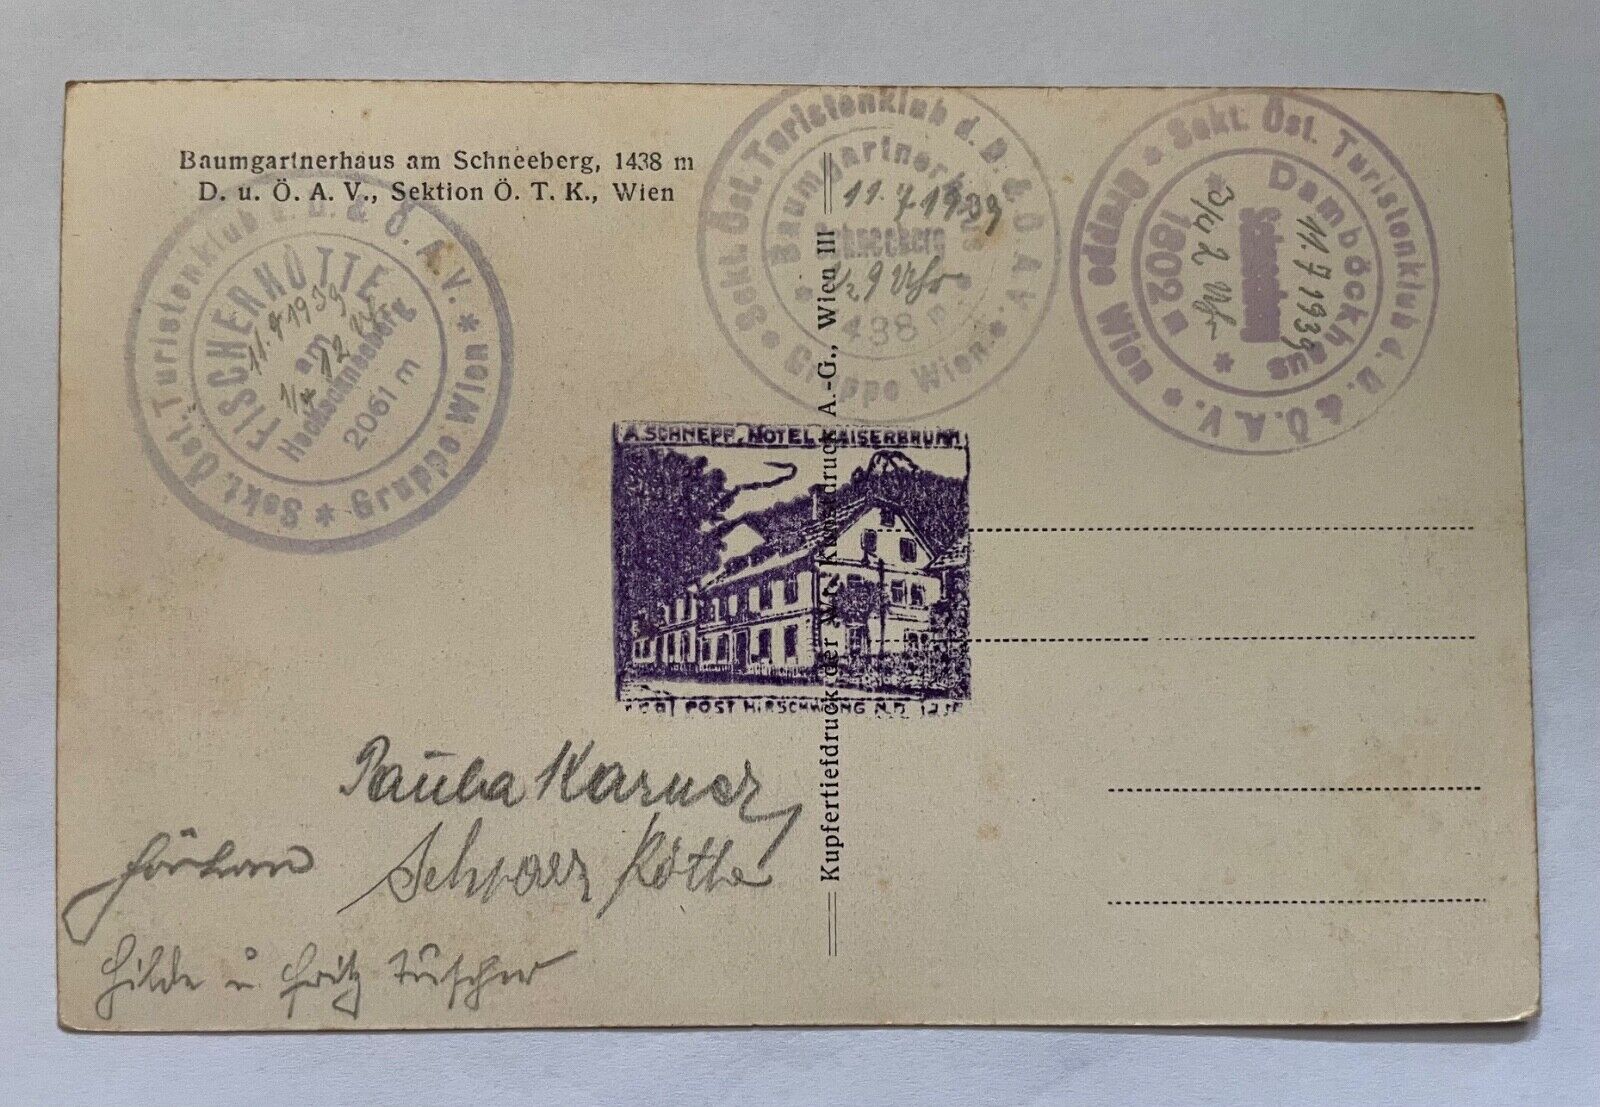 Baumgartnerhaus am Schneeberg, 1438 m
D. u. Ö. A. V., Sektion Ö. T. K., Wien
Sekt. Öst. Turistenklub d. D. & Ö. A. V. * Gruppe Wien *
FISCHERHÜTTE
am
Hochschneeberg
2061 m
1939
12
Sekt. Öst. Turistenklub d. D. & Ö. A. V. * Gruppe Wien *
Baumgartnerhaus
Schneeberg
1438 m
11. 7 1939
1/2 9 Uhr
Sekt. Öst. Turistenklub d. D. & Ö. A. V. * Gruppe Wien *
Damböckhaus
Schneeberg
* 1802 m *
11. 7 1939
3/4 2 Uhr
A. SCHNEPF, HOTEL KAISERBRUNN
POST HIRSCHWANG N.D.
Kupfertiefdruck der Kunstdruck A.-G., Wien III
Karner
Schwarz Käthe
Hilde u Fritz Tuscher